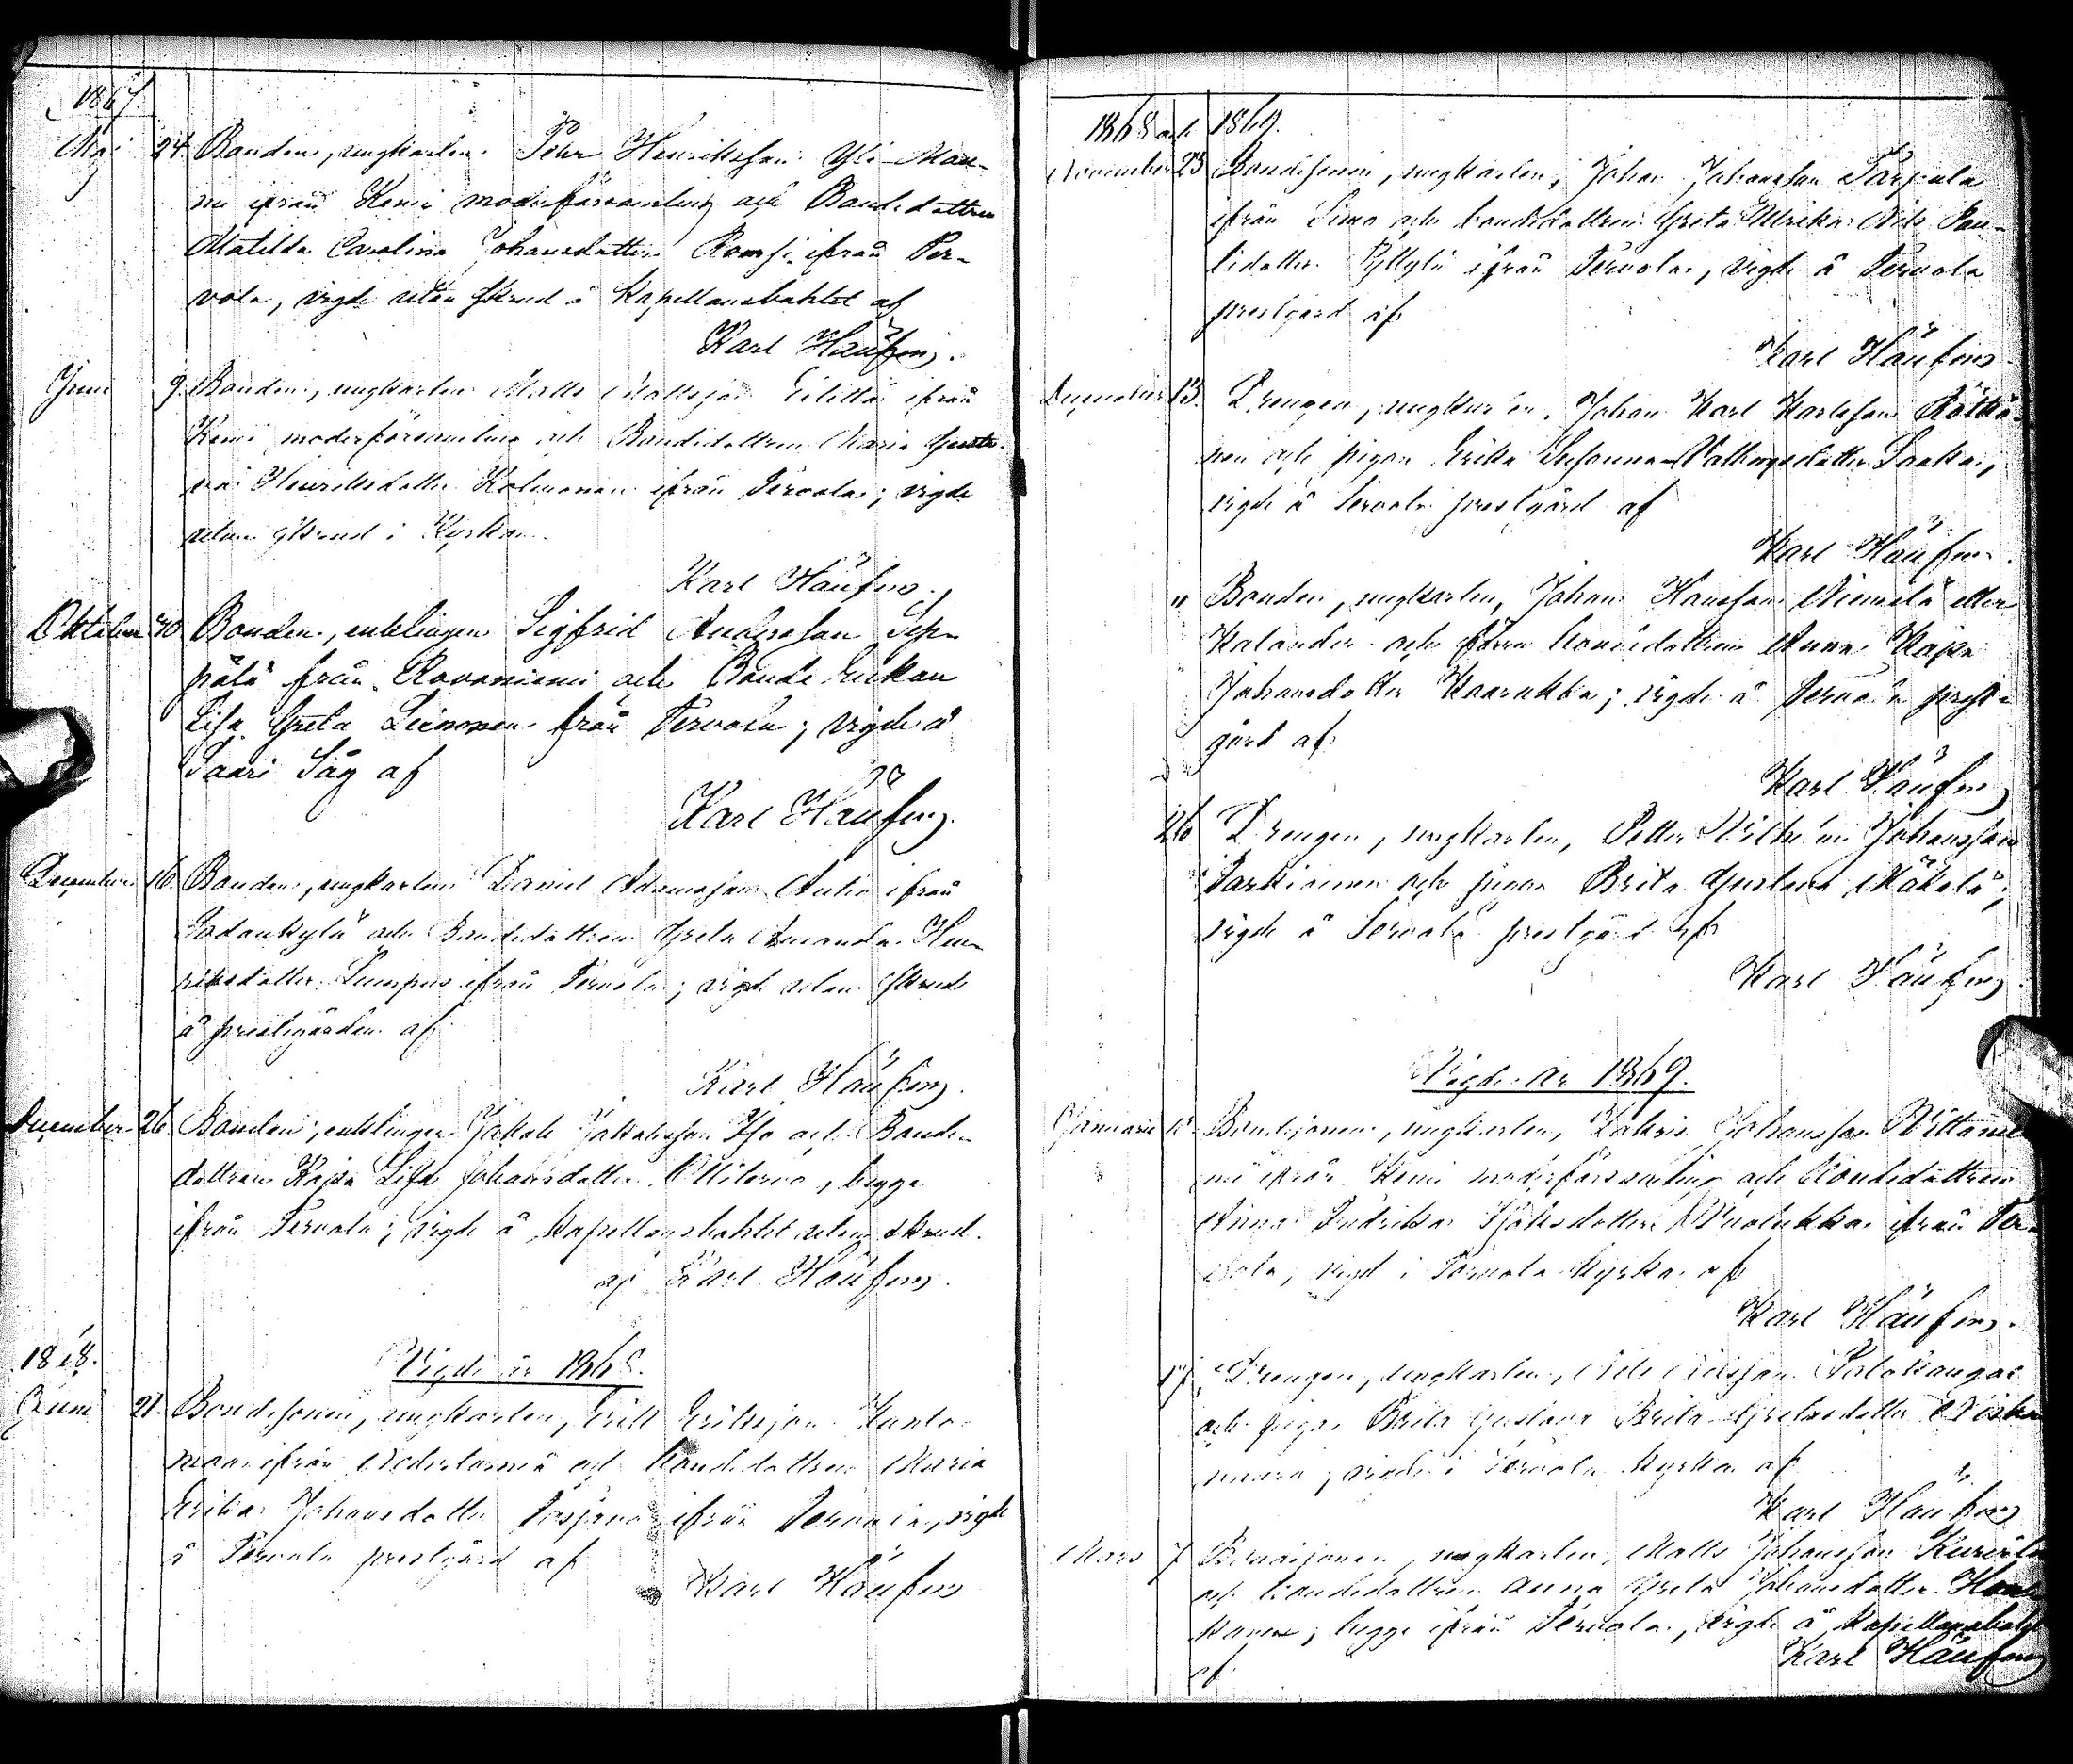 1867.
Maj 24. Bonden, ungkarlen Pehr Henriksson Yli-Mau-
nu ifrån Kemi moderförsamling och Bondedottren
Matilda Carolina Johansdotter Romsi ifrån Ter-
vola, vigde utan skrud å Kapellansbohlet af
Karl Häufens.
Juni 9. Bonden, ungkarlen Matts Mattsson Eilittä ifrån
Kemi moderförsamling och Bondedottren Maria Gusta-
va Henriksdotter Kolmonen ifrån Tervola; vigde
utan skrud i Kyrkan.
Karl Häufens.
Oktober 10 Bonden, enklingen Sigfrid Andersson Sep-
pälä från Rovaniemi och Bonde Enkan
Lisa Greta Leinonen från Tervola; vigde å
Saari Såg af
Karl Häufens.
December 16. Bonden, ungkarlen Daniel Adamsson Autio ifrån
Sodankylä och Bondedottren Greta Amanda Hen-
riksdotter Lumpus ifrån Tervola; vigde utan skrud
å prestgården af
Karl Häufens.
December 26 Bonden, enklingen Jakob Jakobsson Iso och Bonde-
dottren Kajsa Lisa Johansdotter, begge
ifrån Tervola; vigde å Kapellansbohlet utan skrud.
af Karl Häufens.
1868.
Vigde år 1868.
Juni 21. Bondesonen, ungkarlen, Erik Eriksson Kunto-
maa ifrån Nedertorneå och bondedottren Maria
Erika Johansdotter ifrån Tervola, vigde
å Tervola prestgård af
Karl Häufens
1868 och 1869.
November 23 Bondesonen, ungkarlen, Johan Johansson Tarpula
ifrån Simo och bondedottren Greta Ulrika Nils Pau-
lidotter Pyllylä ifrån Tervola, vigde å Tervola
prestgård af
Karl Häufens
December 13. Drengen, ungkarlen, Johan Karl Karlsson Rötkö-
nen och pigan Erika Susanna dotter Laaka,
vigde å Tervola prestgård af
Karl Häufens.
" Bonden, ungkarlen, Johan Hansson Niemelä eller
Kalander och förra bondedottren Anna Kajsa
Johansdotter Kaarakka; vigde å Tervola prest-
gård af
Karl Häufens
26 Drengen, ungkarlen, Petter Vilhelm Johansson
Parkinnen och pigan Brita Gustava Mäkelä;
vigde å Tervola prestgård af
Karl Häufens.
Vigde år 1869.
Januari Bondesonen, ungkarlen, Zakris Johansson Viittanie-
mi ifrån Kemi moderförsamling och bondedottren
Anna Fredrika Isaksdotter Vuolukka ifrån Ter-
vola, vigd i Tervola kyrka af
Karl Häufens.
17 Drengen, ungkarlen, Nils Nilsson Palokangas
och pigan Brita Gustava Brita Gretasdotter Niska-
vaara; vigde i Tervola kyrka af
Karl Häufens
Mars 7 Bondesonen, ungkarlen, Matts Johansson Kurvila
och bondedottren Anna Greta Johansdotter Hon-
kanen; begge ifrån Tervola, vigde å Kapellansbohlet
af
Karl Häufens